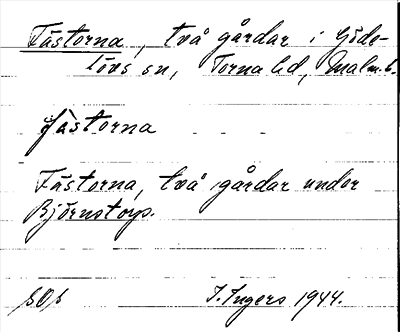 Fästorna, två gårdar i Göde-
lövs sn, Torna hd, Malm. l.
fästorna
Fästorna, två gårdar under
Björnstorp.
I. Ingers 1944.